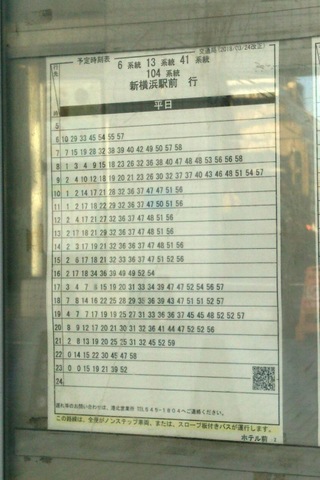 交通局(2018/03/24改正)
予定時刻表 6 系統 13 系統 41 系統
104 系統
新横浜駅前 行
平日
5
6 10 29 33 45 54 55 57
7 7 15 19 28 32 38 39 40 42 49 50 57 58
8 1 3 4 9 15 18 23 26 32 36 38 40 47 48 48 53 56 56 58
9 2 4 10 12 18 19 20 21 23 26 30 32 37 37 40 43 46 48 51 54 57
10 1 2 14 17 21 28 32 36 37 47 47 51 56
11 1 2 17 18 22 29 32 36 37 47 50 51 56
12 2 4 17 21 27 32 36 37 47 48 51 56
13 2 17 18 21 29 32 36 37 47 48 51 56
14 2 3 17 19 21 32 36 36 37 47 48 51 56
15 2 6 17 18 21 32 33 36 37 47 51 52 56
16 2 17 18 34 36 39 49 49 52 54
17 3 4 7 8 15 19 20 31 33 34 39 47 47 52 54 56 57
18 7 8 14 16 22 25 28 29 35 36 39 43 47 51 51 52 57
19 4 7 7 17 19 19 25 27 31 33 36 36 37 45 45 48 52 52 57
20 8 9 12 17 20 21 30 31 32 36 41 44 47 52 52 56
21 2 8 13 19 20 25 25 31 32 45 52 59
22 0 14 15 22 30 45 47 58
23 0 0 15 19 21 39 52
24
遅れ等のお問い合わせは、港北営業所 TEL545-1804へご連絡ください。
この路線は、全座がノンステップ車両、または、スロープ板付きバスが運行します。
ホテル前